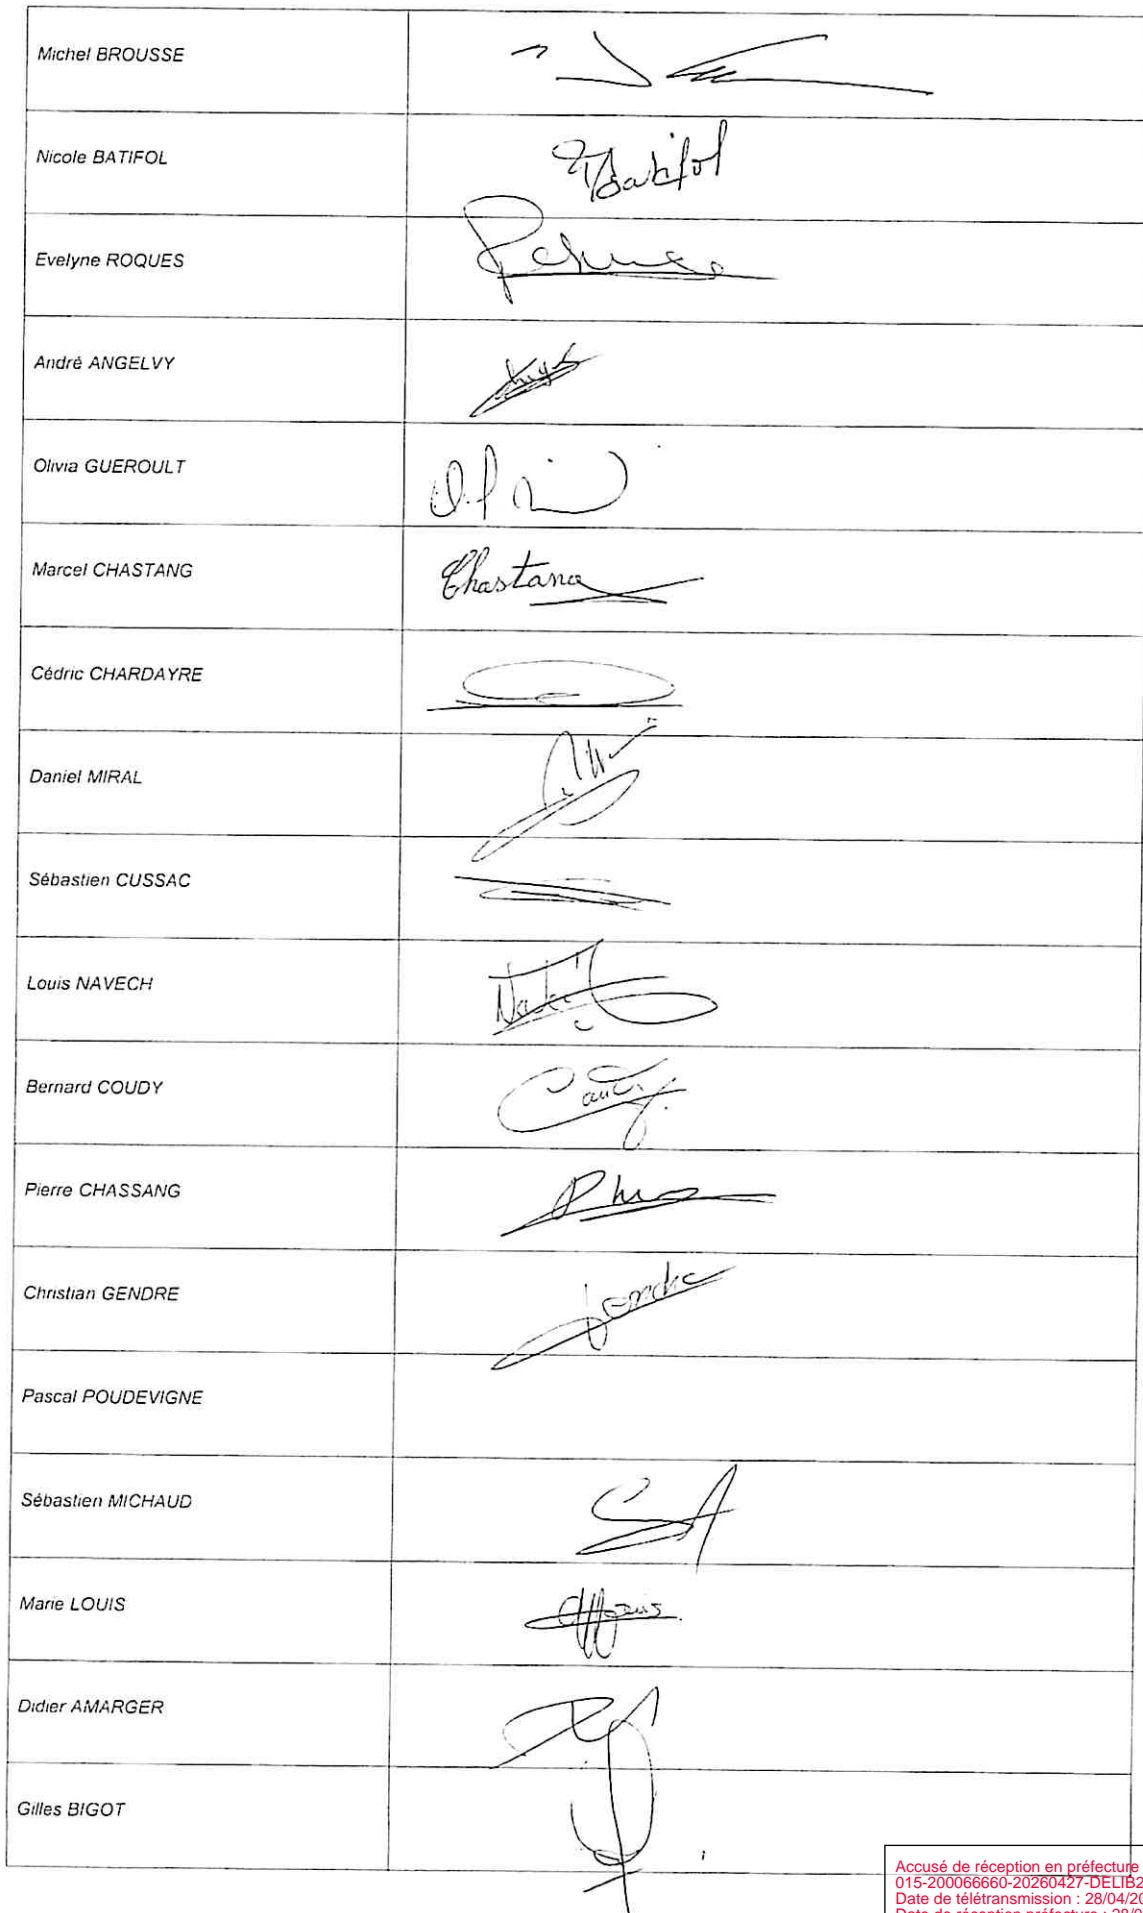 Michel BROUSSE
Nicole BATIFOL
Batifol
Evelyne ROQUES
André ANGELVY
Olivia GUEROULT
Marcel CHASTANG
Chastang
Cédric CHARDAYRE
Daniel MIRAL
Sébastien CUSSAC
Louis NAVECH
Bernard COUDY
Pierre CHASSANG
Christian GENDRE
Gendre
Pascal POUDEVIGNE
Sébastien MICHAUD
Marie LOUIS
Didier AMARGER
Gilles BIGOT
Accusé de réception en préfecture
015-200066660-20260427-DELIB2
Date de télétransmission : 28/04/20
Date de réception préfecture : 28/0